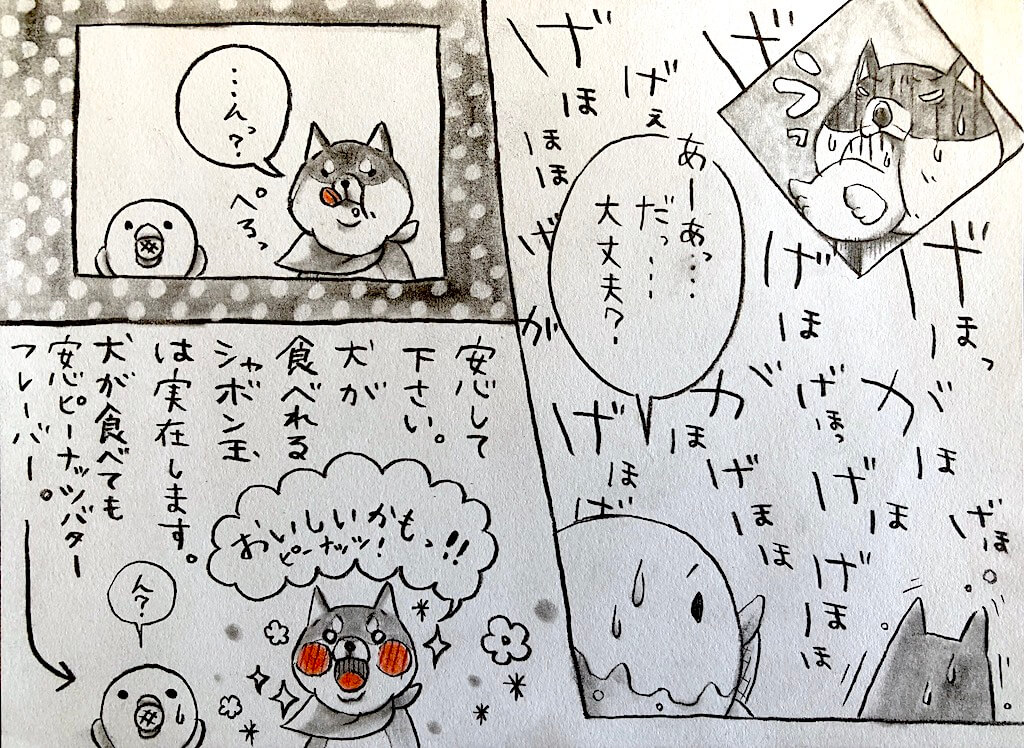 うっ
げほっ
げほ
がほ
げほ
げほっ
げほ
げほほ
げほ
がほ
げほほ
げぇ
げほ
げほほほ
げ
が
げほ
げ
あーあっ…
だっ…
大丈夫?
…んっ?
ぺろっ
安心して
下さい。
犬が
食べれる
シャボン玉、
は実在します。
犬が食べても
安心ピーナッツバター
フレーバー。
おいしいかもっ!!
ピーナッツ!
ん?